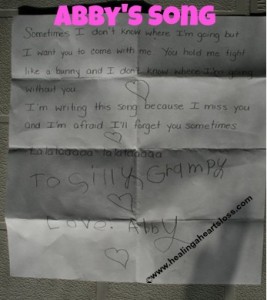 ABBY'S SONG
Sometimes I don't know where I'm going but
I want you to come with me You hold me tight
like a bunny and I don't know where I'm going
without you.
I'm writing this song because I miss you
and I'm afraid I'll forget you sometimes
To Silly Grampy
Love: Abby
©www.healingaheartsloss.com